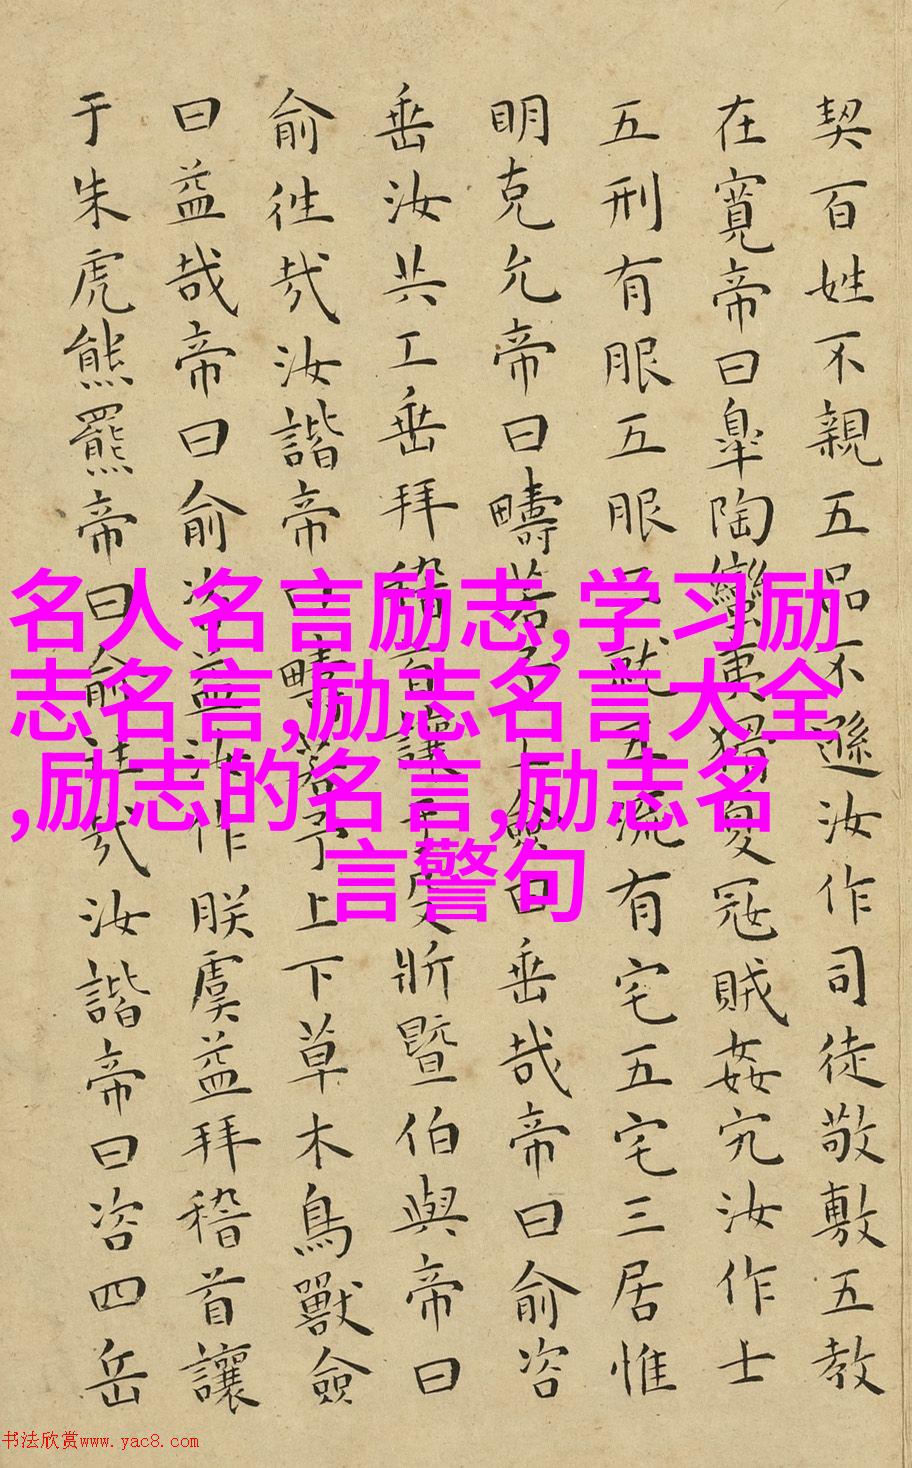 契百姓不親五品不遜汝作司徒敬敷五教
在寬帝曰皐陶蠻夷猾夏冦賊姦宄汝作士
五刑有服五服三就五流有宅五宅三居惟
明克允帝曰疇若予工僉曰垂哉帝曰俞咨
垂汝共工垂拜稽首讓于殳斨暨伯與帝曰
俞徃哉汝諧帝曰疇若予上下草木鳥獸僉
曰益哉帝曰俞咨益汝作朕虞益拜稽首讓
于朱虎熊羆帝曰俞徃哉汝諧帝曰咨四岳
名人名言励志,学习励
志名言,励志名言大全
,励志的名言,励志名
言警句
书法欣赏www.yac8.com